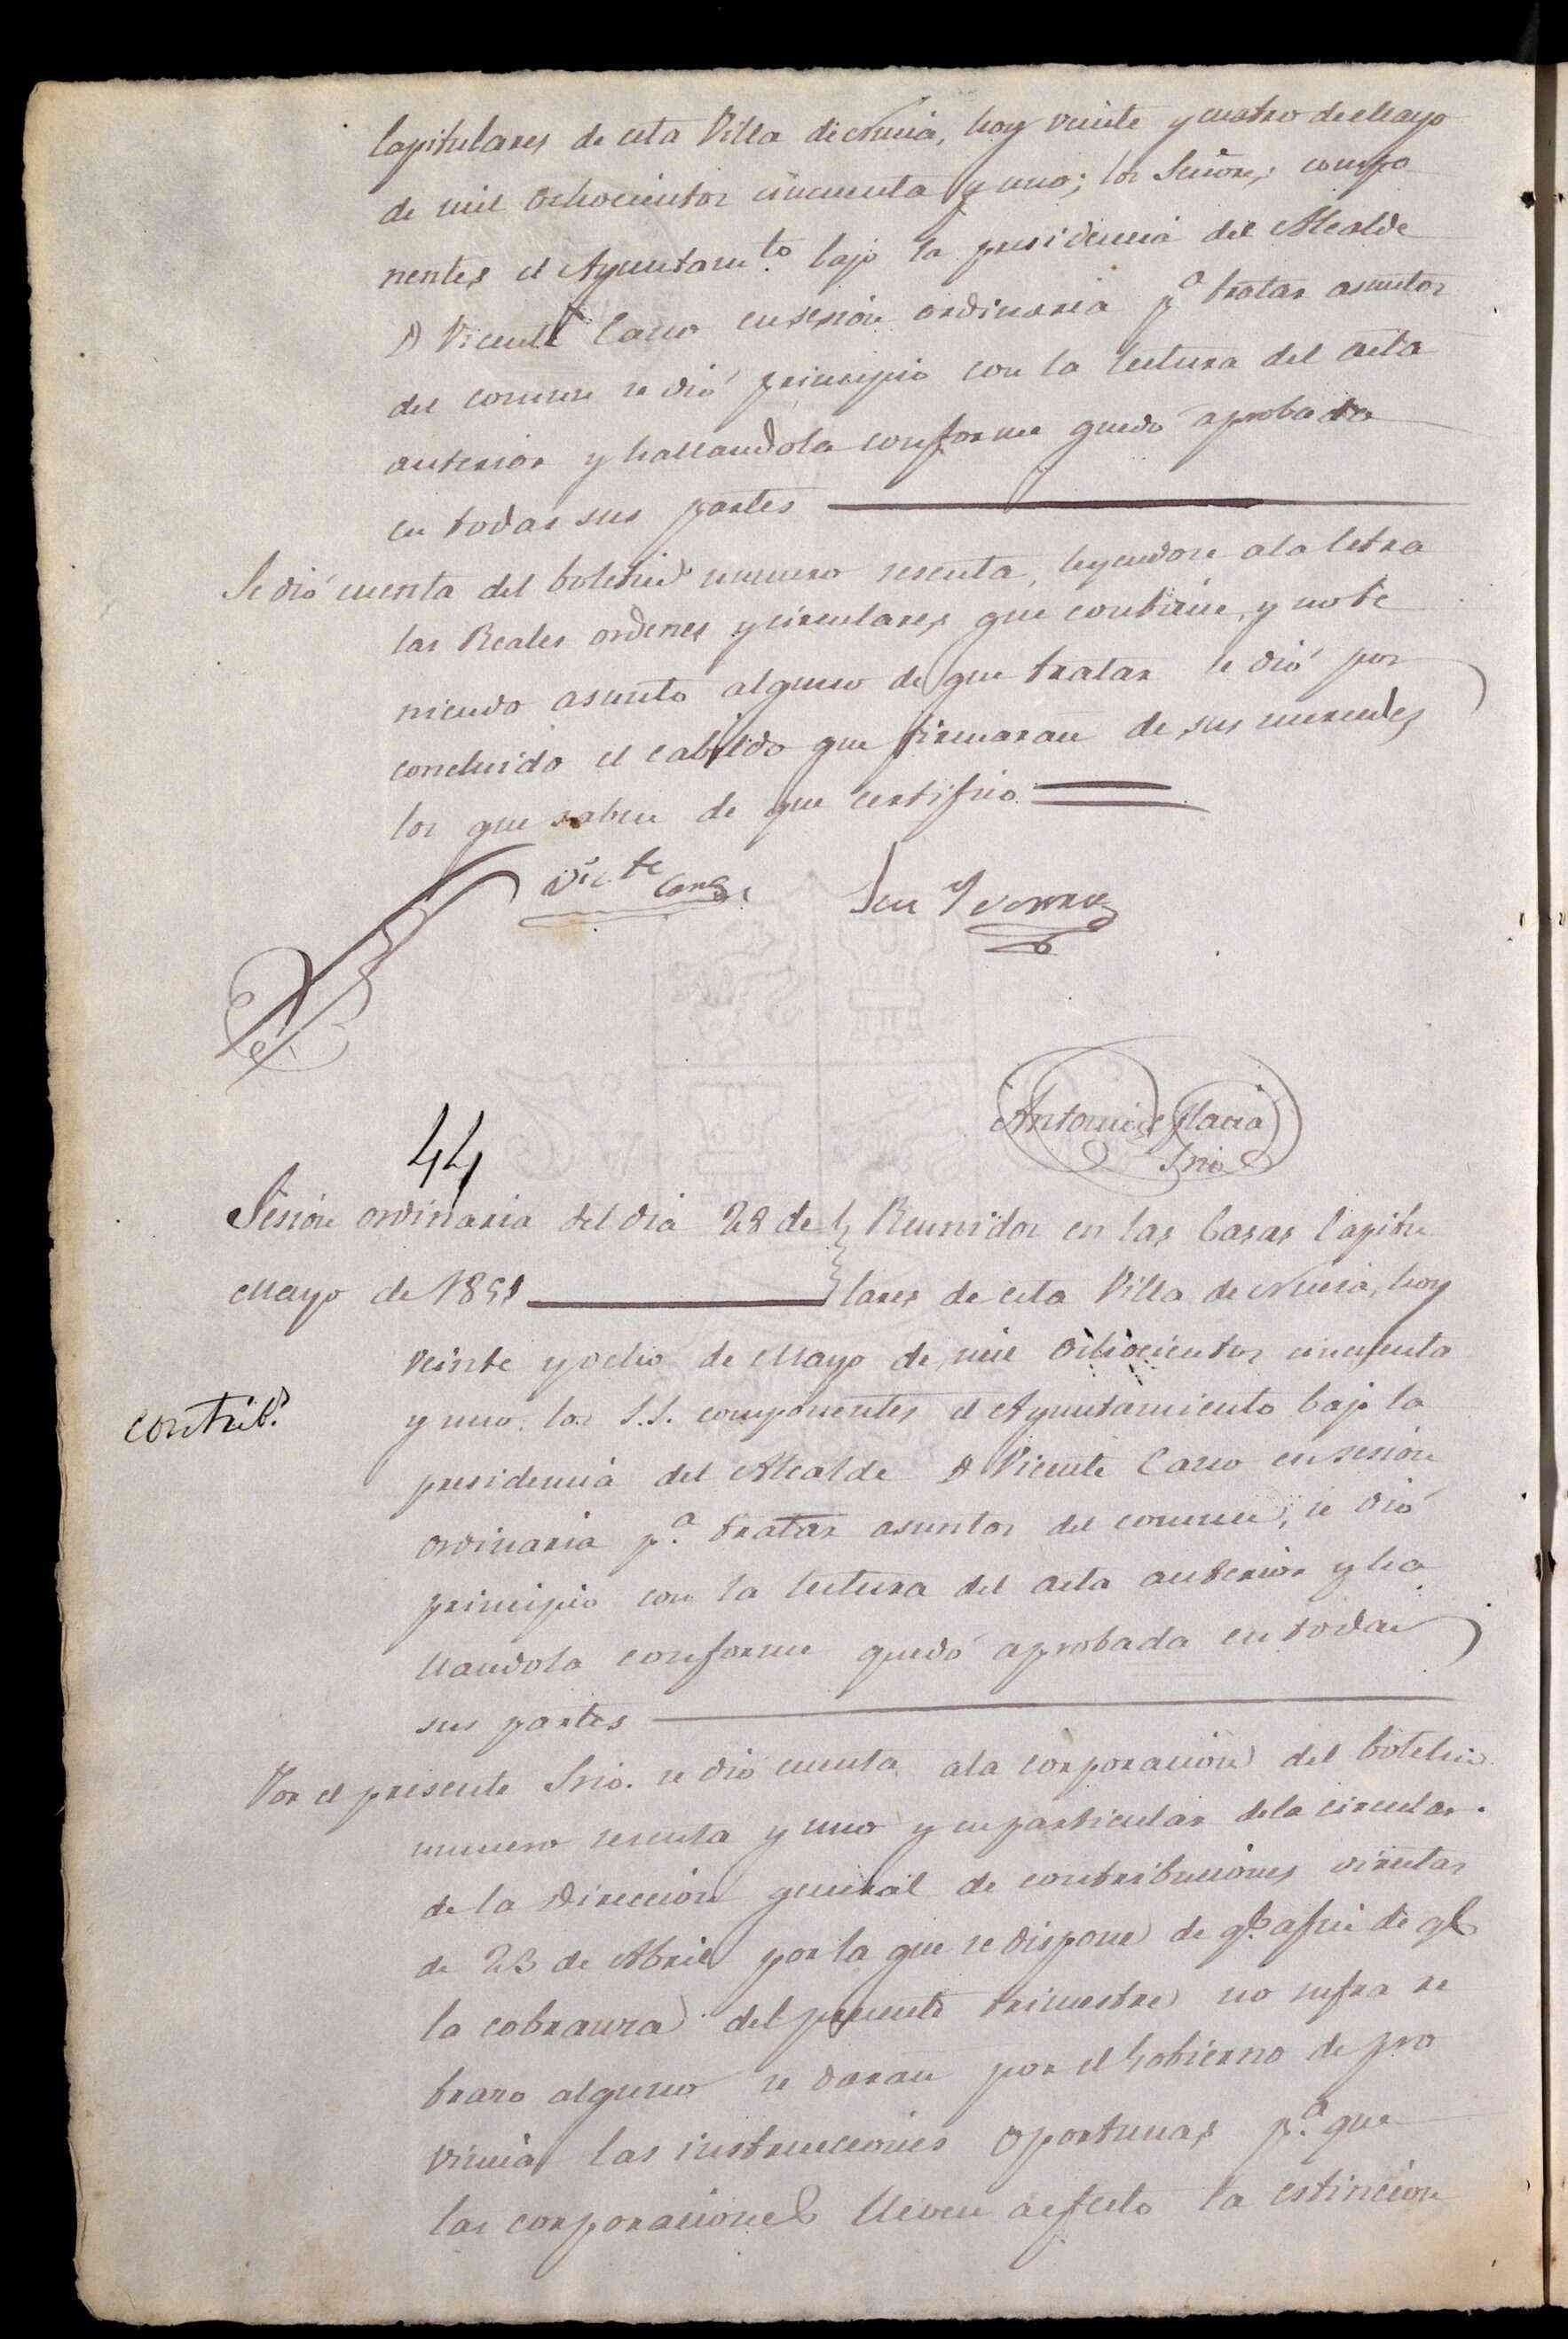 Capitulares de esta Villa de Nucia, hoy veinte y cuatro de Mayo
de mil ochocientos cincuenta y uno; los Señores compo
nentes el Ayuntam.to bajo la presidencia del Alcalde
D Vicente Cano en sesion ordinaria p.a tratar asuntos
del comun se dió principio con la lectura del acta
anterior y hallandola conforme quedó aprobada
en todas sus partes
Se dió cuenta del boletin numero sesenta, leyendose a la letra
las Reales ordenes y circulares que contiene, y no te
niendo asunto alguno de que tratar se dió por
concluido el cabildo que firmaran de sus mercedes
los que saben de que certifico
Vic.te Cano
Antonio Llacia
Srio
44
Sesion ordinaria del dia 28 de
Mayo de 1851
Reunidos en las Casas Capitu
lares de esta Villa de Nucia, hoy
veinte y ocho de Mayo de mil ochocientos cincuenta
contrib.s
y uno, los S.S. componentes el Ayuntamiento bajo la
presidencia del Alcalde D Vicente Cano en sesion
ordinaria p.a tratar asuntos del comun, se dió
principio con la lectura del acta anterior y ha
llandola conforme quedó aprobada en todas
sus partes
Por el presente Srio. se dió cuenta a la corporacion del boletin
numero sesenta y uno y en particular de la circular
de la Direccion general de contribuciones directas
de 23 de Abril por la que se dispone de q.e a fin de q.e
la cobranza del presente trimestre no sufra re
traso alguno se daran por el Gobierno de pro
vincia las instrucciones oportunas p.a que
las corporaciones lleven a efecto la estincion